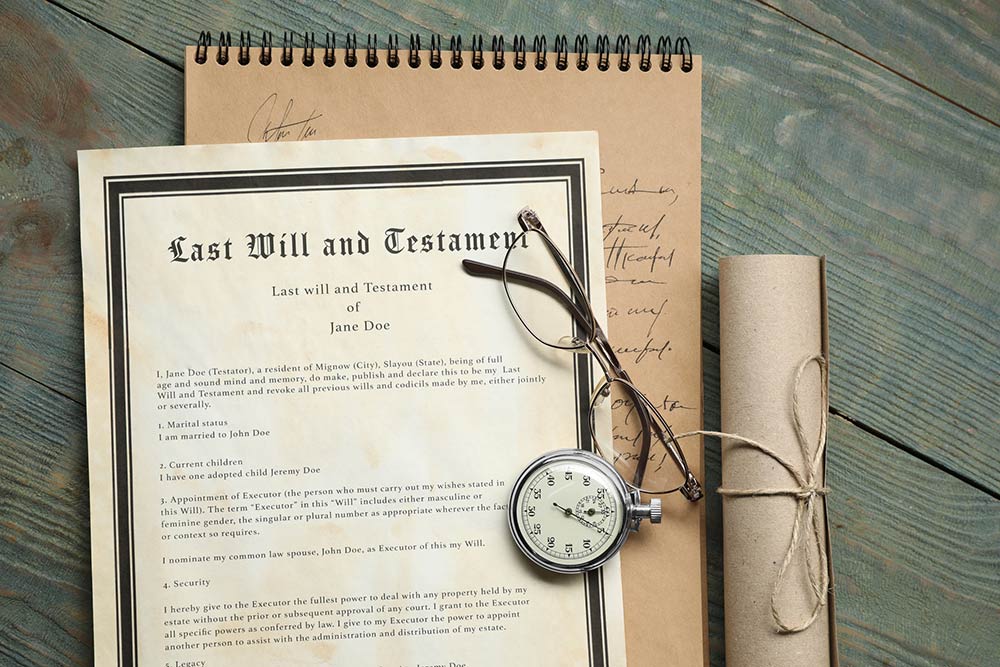 Last Will and Testament
Last will and Testament
of
Jane Doe
I, Jane Doe (Testator), a resident of Mignow (City), Slayou (State), being of full
age and sound mind and memory, do make, publish and declare this to be my Last
Will and Testament and revoke all previous wills and codicils made by me, either jointly
or severally.
1. Marital status
I am married to John Doe
2. Current children
I have one adopted child Jeremy Doe
3. Appointment of Executor (the person who must carry out my wishes stated in
this Will). The term "Executor" in this "Will" includes either masculine or
feminine gender, the singular or plural number as appropriate wherever the
or context so requires.
I nominate my common law spouse, John Doe, as Executor of this my Will.
4. Security
I hereby give to the Executor the fullest power to deal with any property held by my
estate without the prior or subsequent approval of any court. I grant to the Executor
all specific powers as conferred by law. I give to my Executor the power to appoint
another person to assist with the administration and distribution of my estate.
5. Legacy
Jeremy Doe